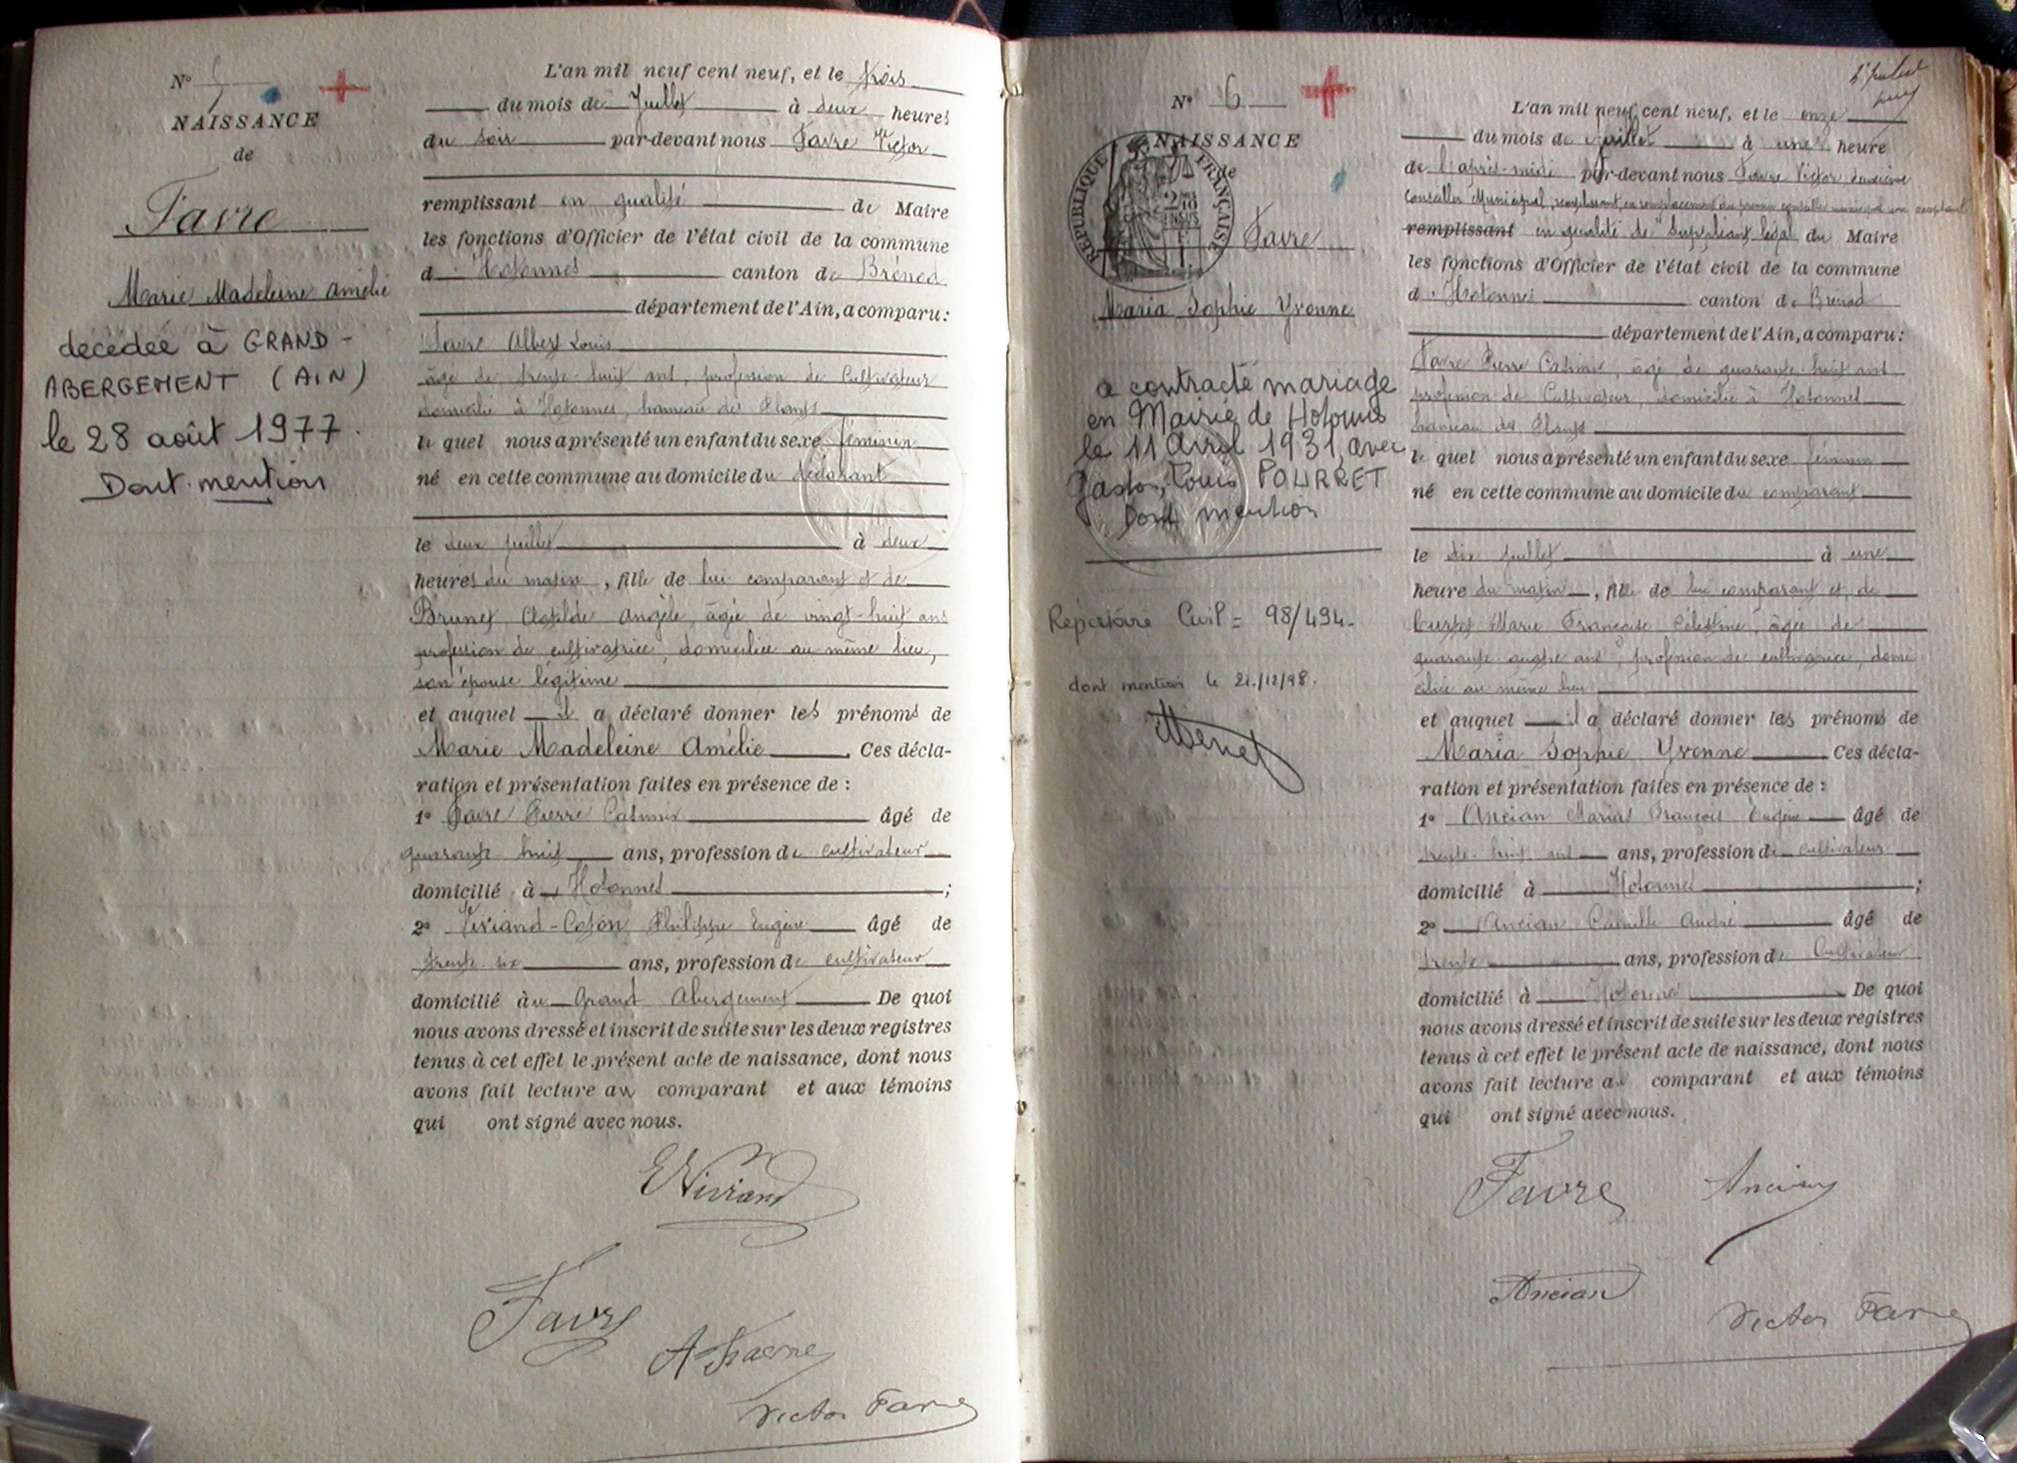 N° 5
NAISSANCE
de
Favre
Marie Madeleine Amélie
décédée à GRAND-
ABERGEMENT (AIN)
le 28 août 1977.
Dont mention
L'an mil neuf cent neuf, et le trois
du mois de Juillet à deux heures
du soir par-devant nous Favre Victor
remplissant en qualité de Maire
les fonctions d'Officier de l'état civil de la commune
d'Hotonnes canton de Brénod
département de l'Ain, a comparu:
Favre Albert Louis
âgé de trente-huit ans, profession de Cultivateur
domicilié à Hotonnes, hameau des Plans
le quel nous a présenté un enfant du sexe féminin
né en cette commune au domicile du déclarant
le deux juillet à deux
heures du matin, fille de lui comparant et de
Brunet Clotilde Angèle, âgée de vingt-huit ans
profession de cultivatrice, domiciliée au même lieu,
son épouse légitime
et auquel il a déclaré donner les prénoms de
Marie Madeleine Amélie. Ces décla-
ration et présentation faites en présence de :
1° Favre Pierre Casimir âgé de
quarante huit ans, profession de cultivateur
domicilié à Hotonnes;
2° Viviand-Coton Philippe Eugène âgé de
trente-six ans, profession de cultivateur
domicilié au Grand Abergement De quoi
nous avons dressé et inscrit de suite sur les deux registres
tenus à cet effet le présent acte de naissance, dont nous
avons fait lecture au comparant et aux témoins
qui ont signé avec nous.
EViviand
Favre
A Favre
Victor Favre
N° 6
NAISSANCE
de
RÉPUBLIQUE FRANÇAISE
Favre
Maria Sophie Yvonne
a contracté mariage
en Mairie de Hotonnes
le 11 Avril 1931, avec
Gaston, Louis POURRET
Dont mention
Répertoire Civil = 98/494.
dont mention le 21/12/98.
L'an mil neuf cent neuf, et le onze
du mois de juillet à une heure
de l'après-midi par-devant nous Favre Victor deuxième
Conseiller Municipal, remplissant, en remplacement du premier conseiller municipal non acceptant
remplissant en qualité de "Suppléant légal du Maire
les fonctions d'Officier de l'état civil de la commune
d'Hotonnes canton de Brénod
département de l'Ain, a comparu:
Favre Pierre Casimir, âgé de quarante huit ans
profession de Cultivateur, domicilié à Hotonnes
hameau des Plans
le quel nous a présenté un enfant du sexe féminin
né en cette commune au domicile du comparant
le dix juillet à une
heure du matin, fille de lui comparant et de
Marie Françoise Célestine, âgée de
quarante-quatre ans, profession de cultivatrice, domi
ciliée au même lieu
et auquel il a déclaré donner les prénoms de
Maria Sophie Yvonne Ces décla-
ration et présentation faites en présence de :
1° Ancian Marius François Eugène âgé de
trente-huit ans ans, profession de cultivateur
domicilié à Hotonnes;
2° Ancian Camille André âgé de
trente ans, profession de Cultivateur
domicilié à Hotonnes De quoi
nous avons dressé et inscrit de suite sur les deux registres
tenus à cet effet le présent acte de naissance, dont nous
avons fait lecture au comparant et aux témoins
qui ont signé avec nous.
Favre Ancian
Ancian
Victor Favre